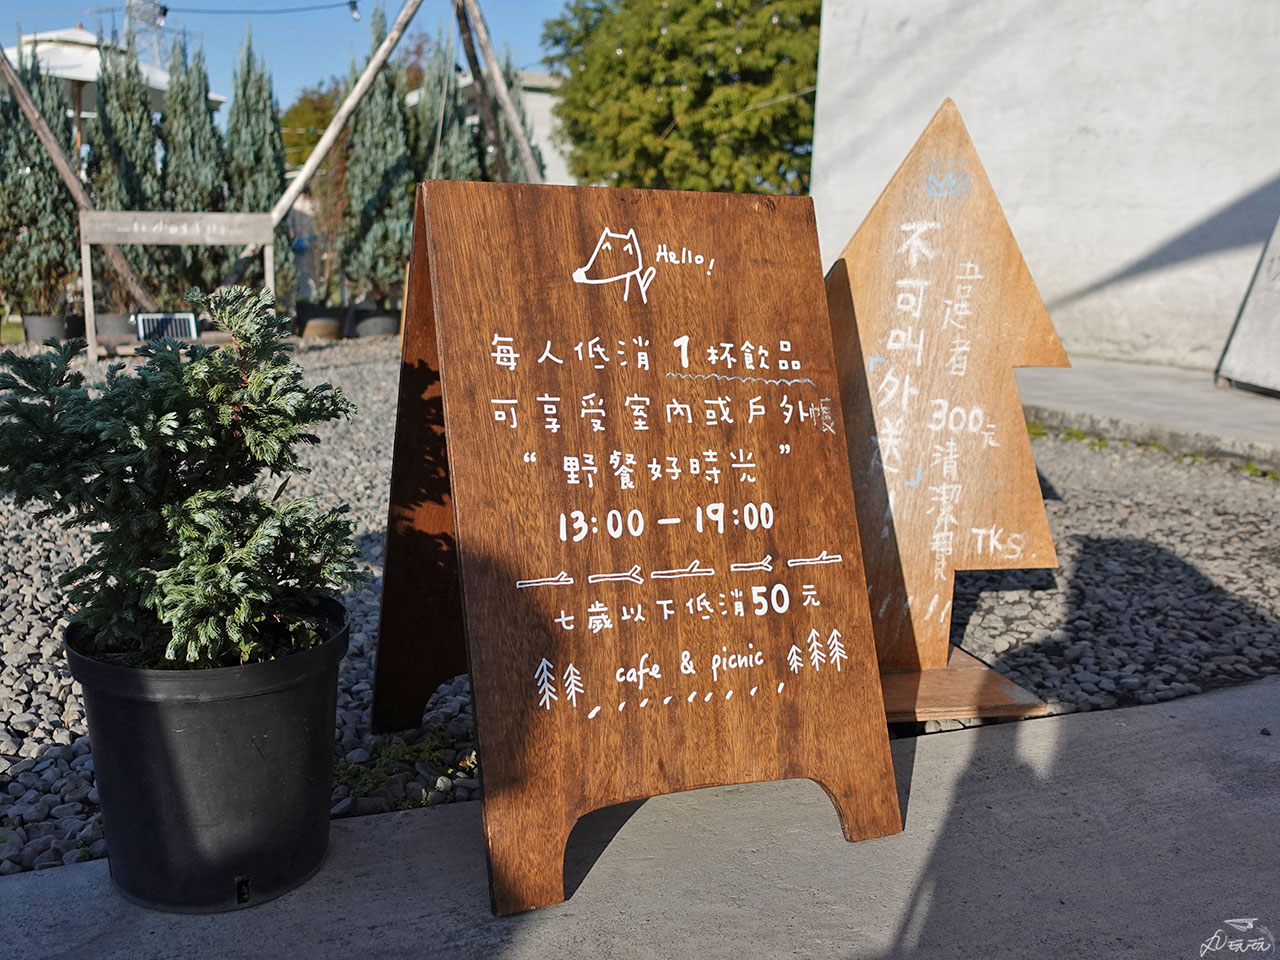 Hello!
每人低消1杯飲品
可享受室內或戶外帳
“野餐好時光”
13:00－19:00
七歲以下低消50元
cafe & picnic
不可叫「外送」！
違者
300元
清潔費
TKS.